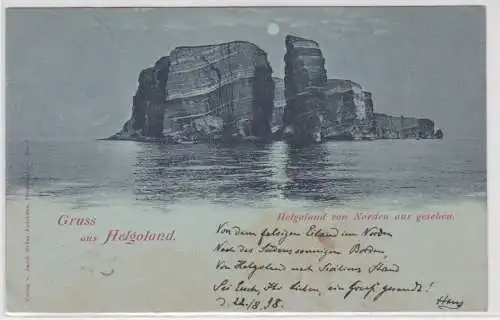 Helgoland von Norden aus gesehen.
Gruss
aus Helgoland.
Von dem felsigen Eiland im Norden
Nach des Südens sonnigen Borden,
Von Helgoland nach Siciliens Strand
Sei Euch, Ihr Lieben, ein Gruß gesandt!
d. 22./8. 98.
Hans